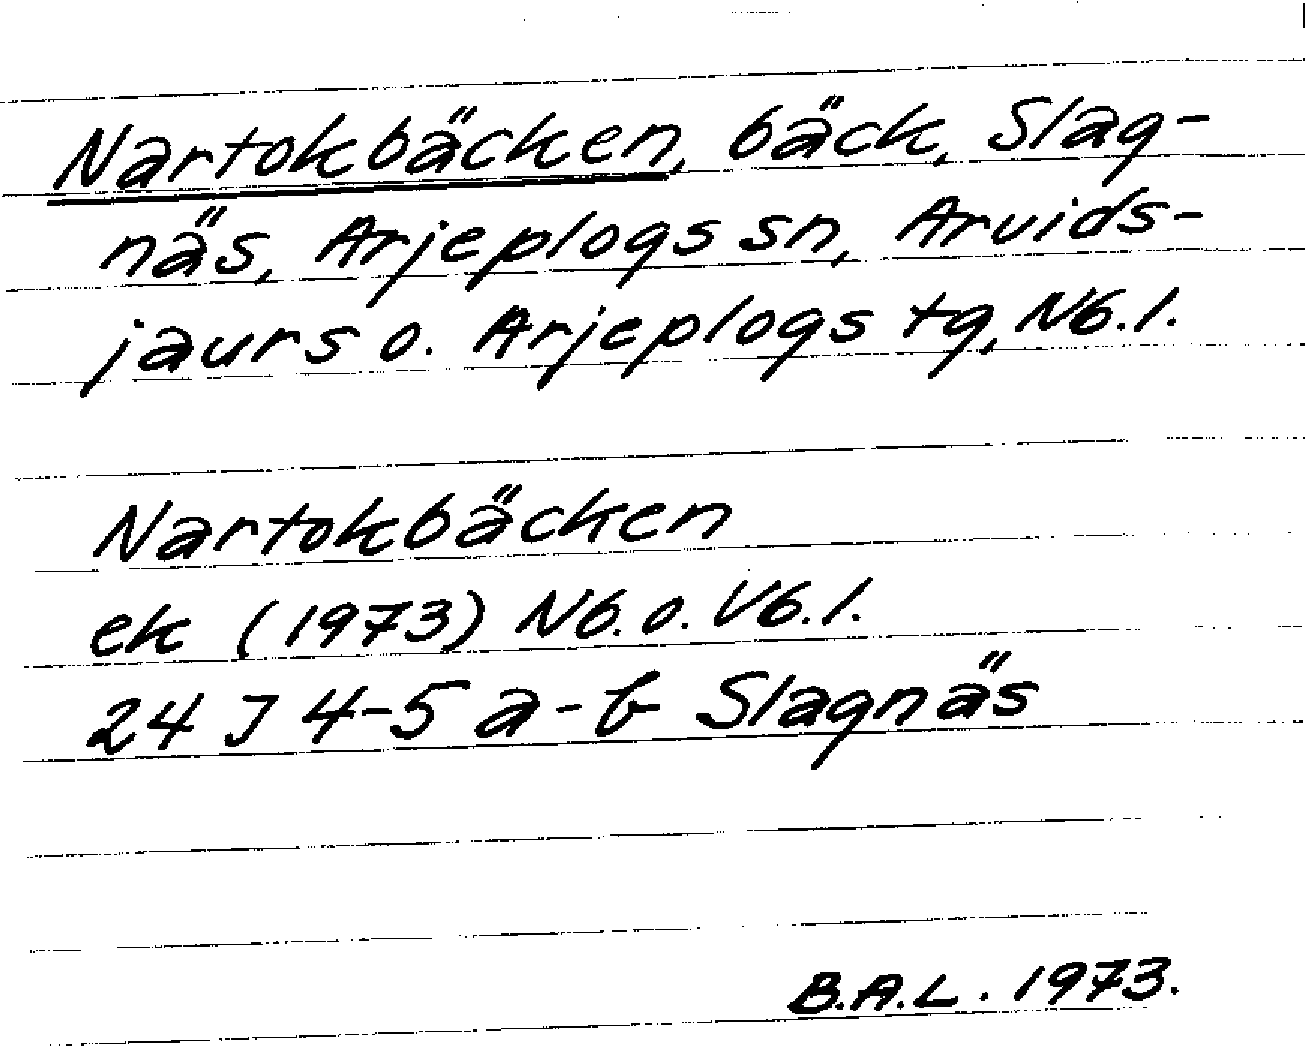 Nartokbäcken, bäck, Slag-
näs, Arjeplogs sn, Arvids-
jaurs o. Arjeplogs tg, Nb.l.
Nartokbäcken
ek (1973) Nb. o. Vb.l.
24 J 4-5 a-b Slagnäs
B.A.L. 1973.